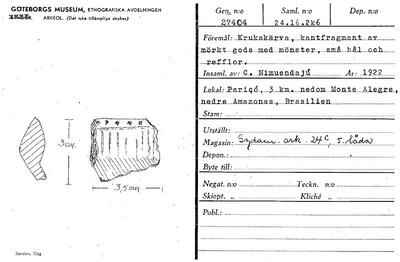 GÖTEBORGS MUSEUM, ETNOGRAFISKA AVDELNINGEN
ARKEOL. (Det icke tillämpliga strykes)
3 cm.
3,5 cm
Gen. n:o
Saml. n:o
Dep. n:o
27404
24.16.2k6
Föremål: Krukskärva, kantfragment av
mörkt gods med mönster, små hål och
refflor.
Insaml. av: C. Nimuendajú År: 1922
Lokal: Parigó, 3 km. nedom Monte Alegre,
nedre Amazonas, Brasilien
Stam:
Utställt:
Magasin: Sydam. ark. 24C, 5. låda
Depon.:
Byte till:
Negat. n:o Teckn. n:o
Skiopt. „ Kliché „
Publ.: